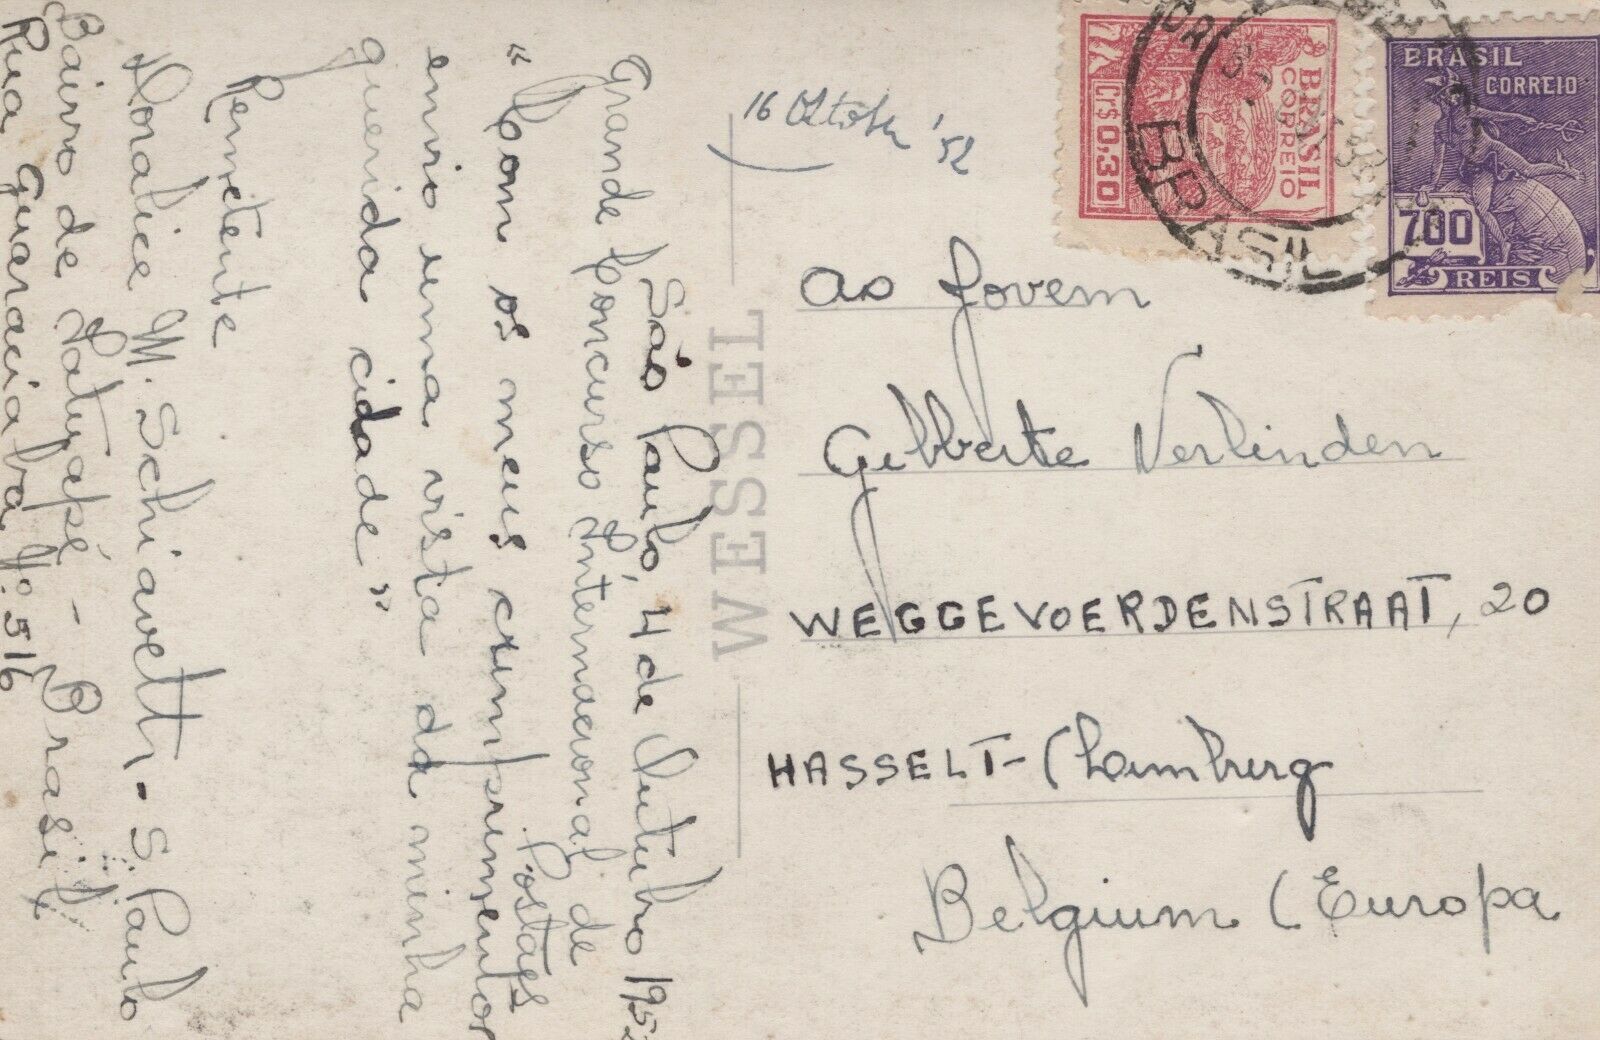 São Paulo, 4 de Outubro 1952
Grande Concurso Internacional de
Postães
"Com os meus cumprimentos
envio uma vista da minha
querida cidade"
Remetente
Doralice M. Schiavetti - S. Paulo
Bairro de Tatuapé - Brasil
Rua Guaraciaba Nº 516
WESSEL
16 Oktober '52
BRASIL
CORREIO
Cr$ 0,30
BRASIL
CORREIO
700
REIS
BRASIL
Ao Jovem
Gilberte Verlinden
WEGGEVOERDENSTRAAT, 20
HASSELT - (Lamberg
Belgium (Europa